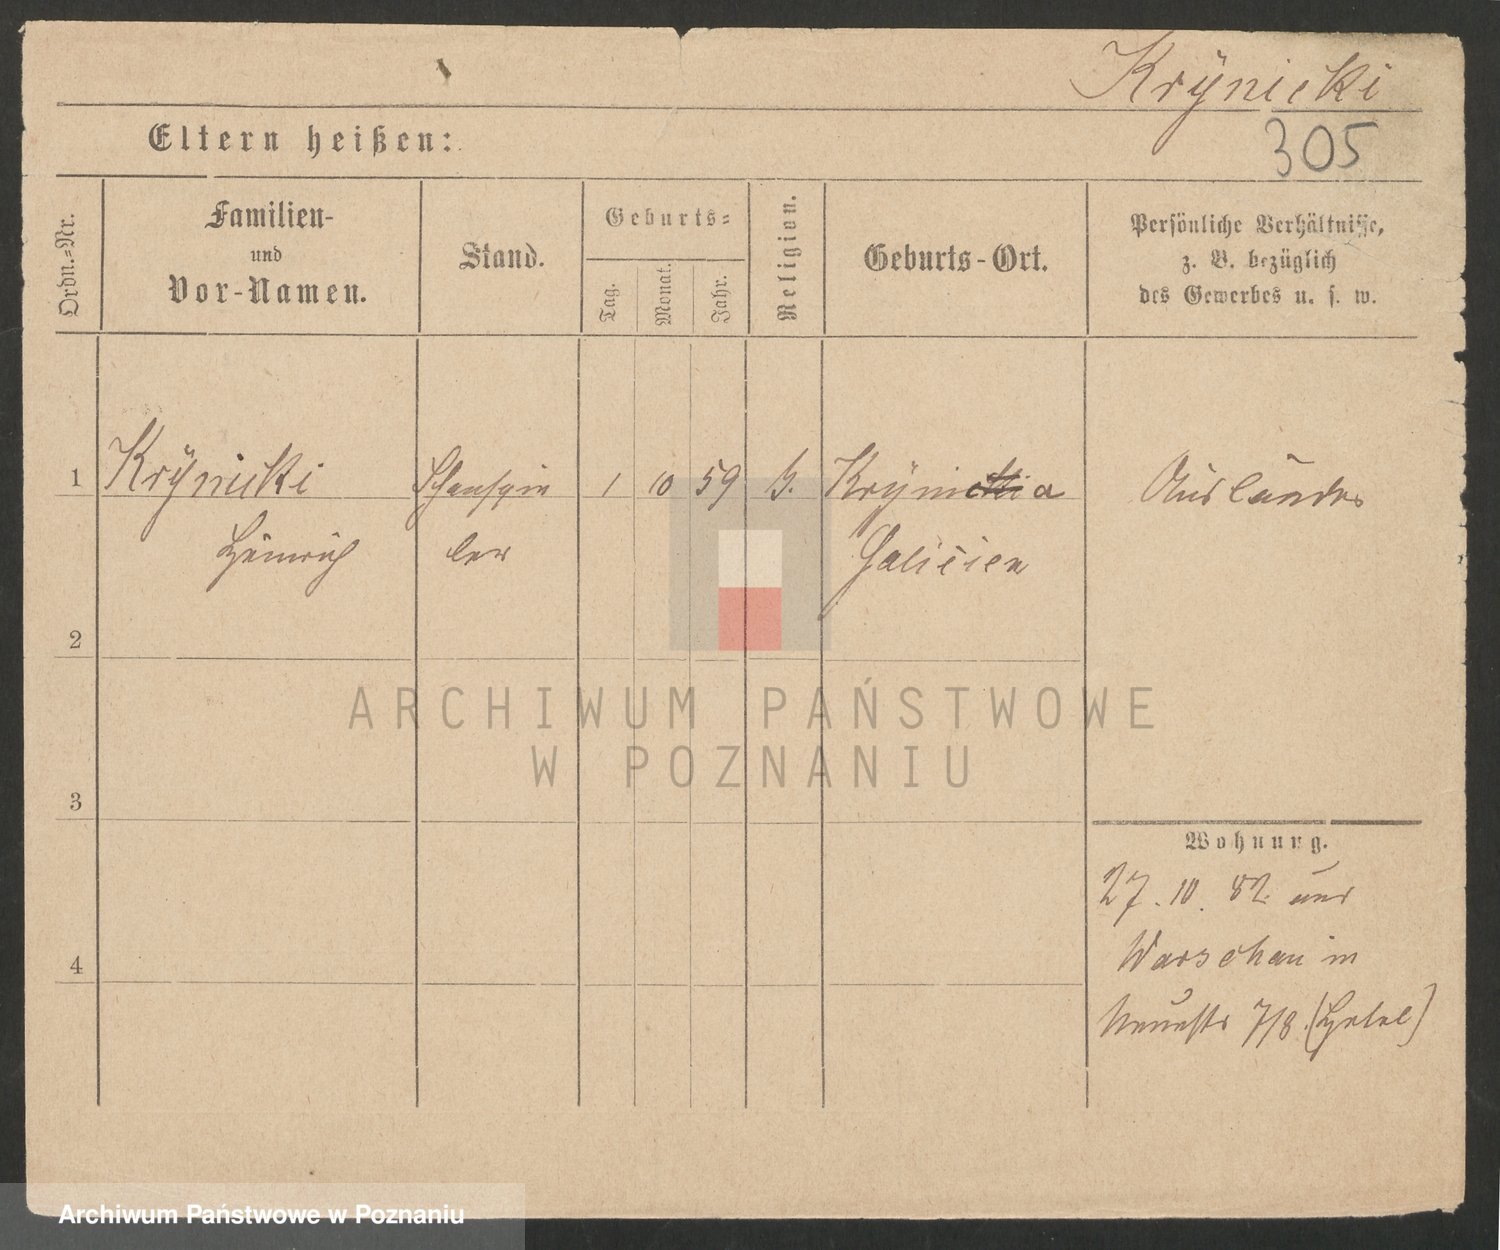 Krÿnicki
305
Eltern heißen:
Ordn.-Nr.
Familien-
und
Vor-Namen.
Stand.
Geburts-
Tag.
Monat.
Jahr.
Religion.
Geburts-Ort.
Persönliche Verhältnisse,
z. B. bezüglich
des Gewerbes u. s. w.
1 Krÿnicki Schauspie 1 10 59 Krÿnica Ausländer
Heinrich ler Galicien
2
3
4
Wohnung.
27. 10. 82. aus
Warschau in
Neuestr 7/8. (Hotel)
ARCHIWUM PAŃSTWOWE
W POZNANIU
Archiwum Państwowe w Poznaniu